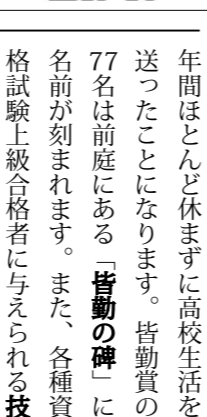 年間ほとんど休まずに高校生活を
送ったことになります。皆勤賞の
77名は前庭にある「皆勤の碑」に
名前が刻まれます。また、各種資
格試験上級合格者に与えられる技